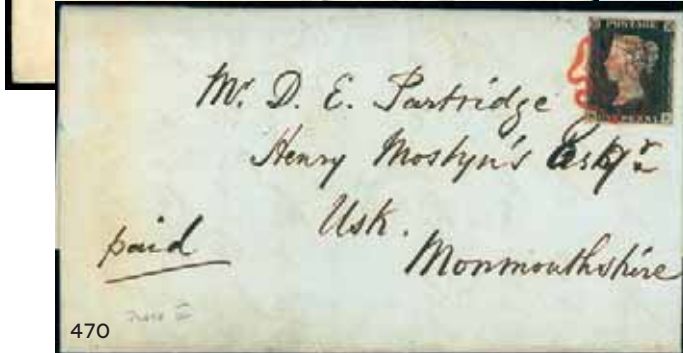 POSTAGE
Mr. D. E. Partridge
Henry Mostyn's Esqr.
Usk.
paid
Monmouthshire
470